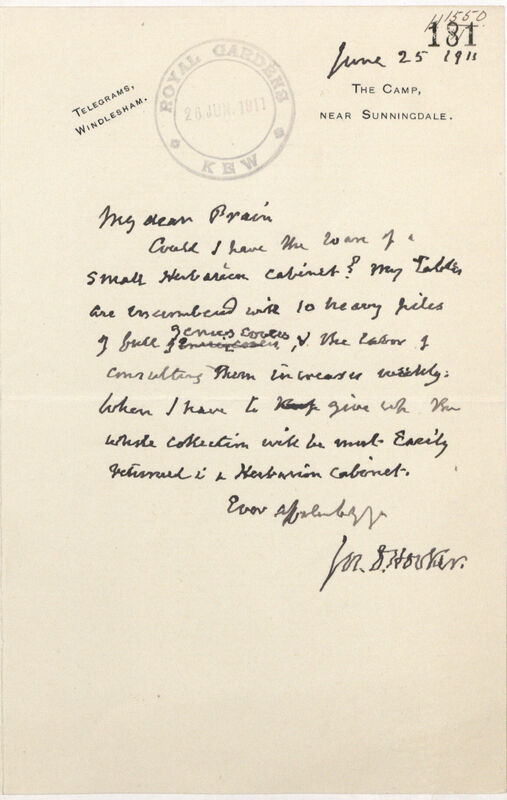 H1550.
181
June 25 1911
TELEGRAMS,
WINDLESHAM.
THE CAMP,
NEAR SUNNINGDALE.
ROYAL GARDENS
26 JUN. 1911
KEW
My dear Prain
Could I have the loan of a
small Herbarium Cabinet? My Tables
are incumbered with 10 heavy piles
of full genus covers, & the labor of
consulting them increases weekly:
when I have to give up the
whole collection will be most easily
returned in a Herbarium Cabinet.
Ever affectionately yrs
Jos. D. Hooker.